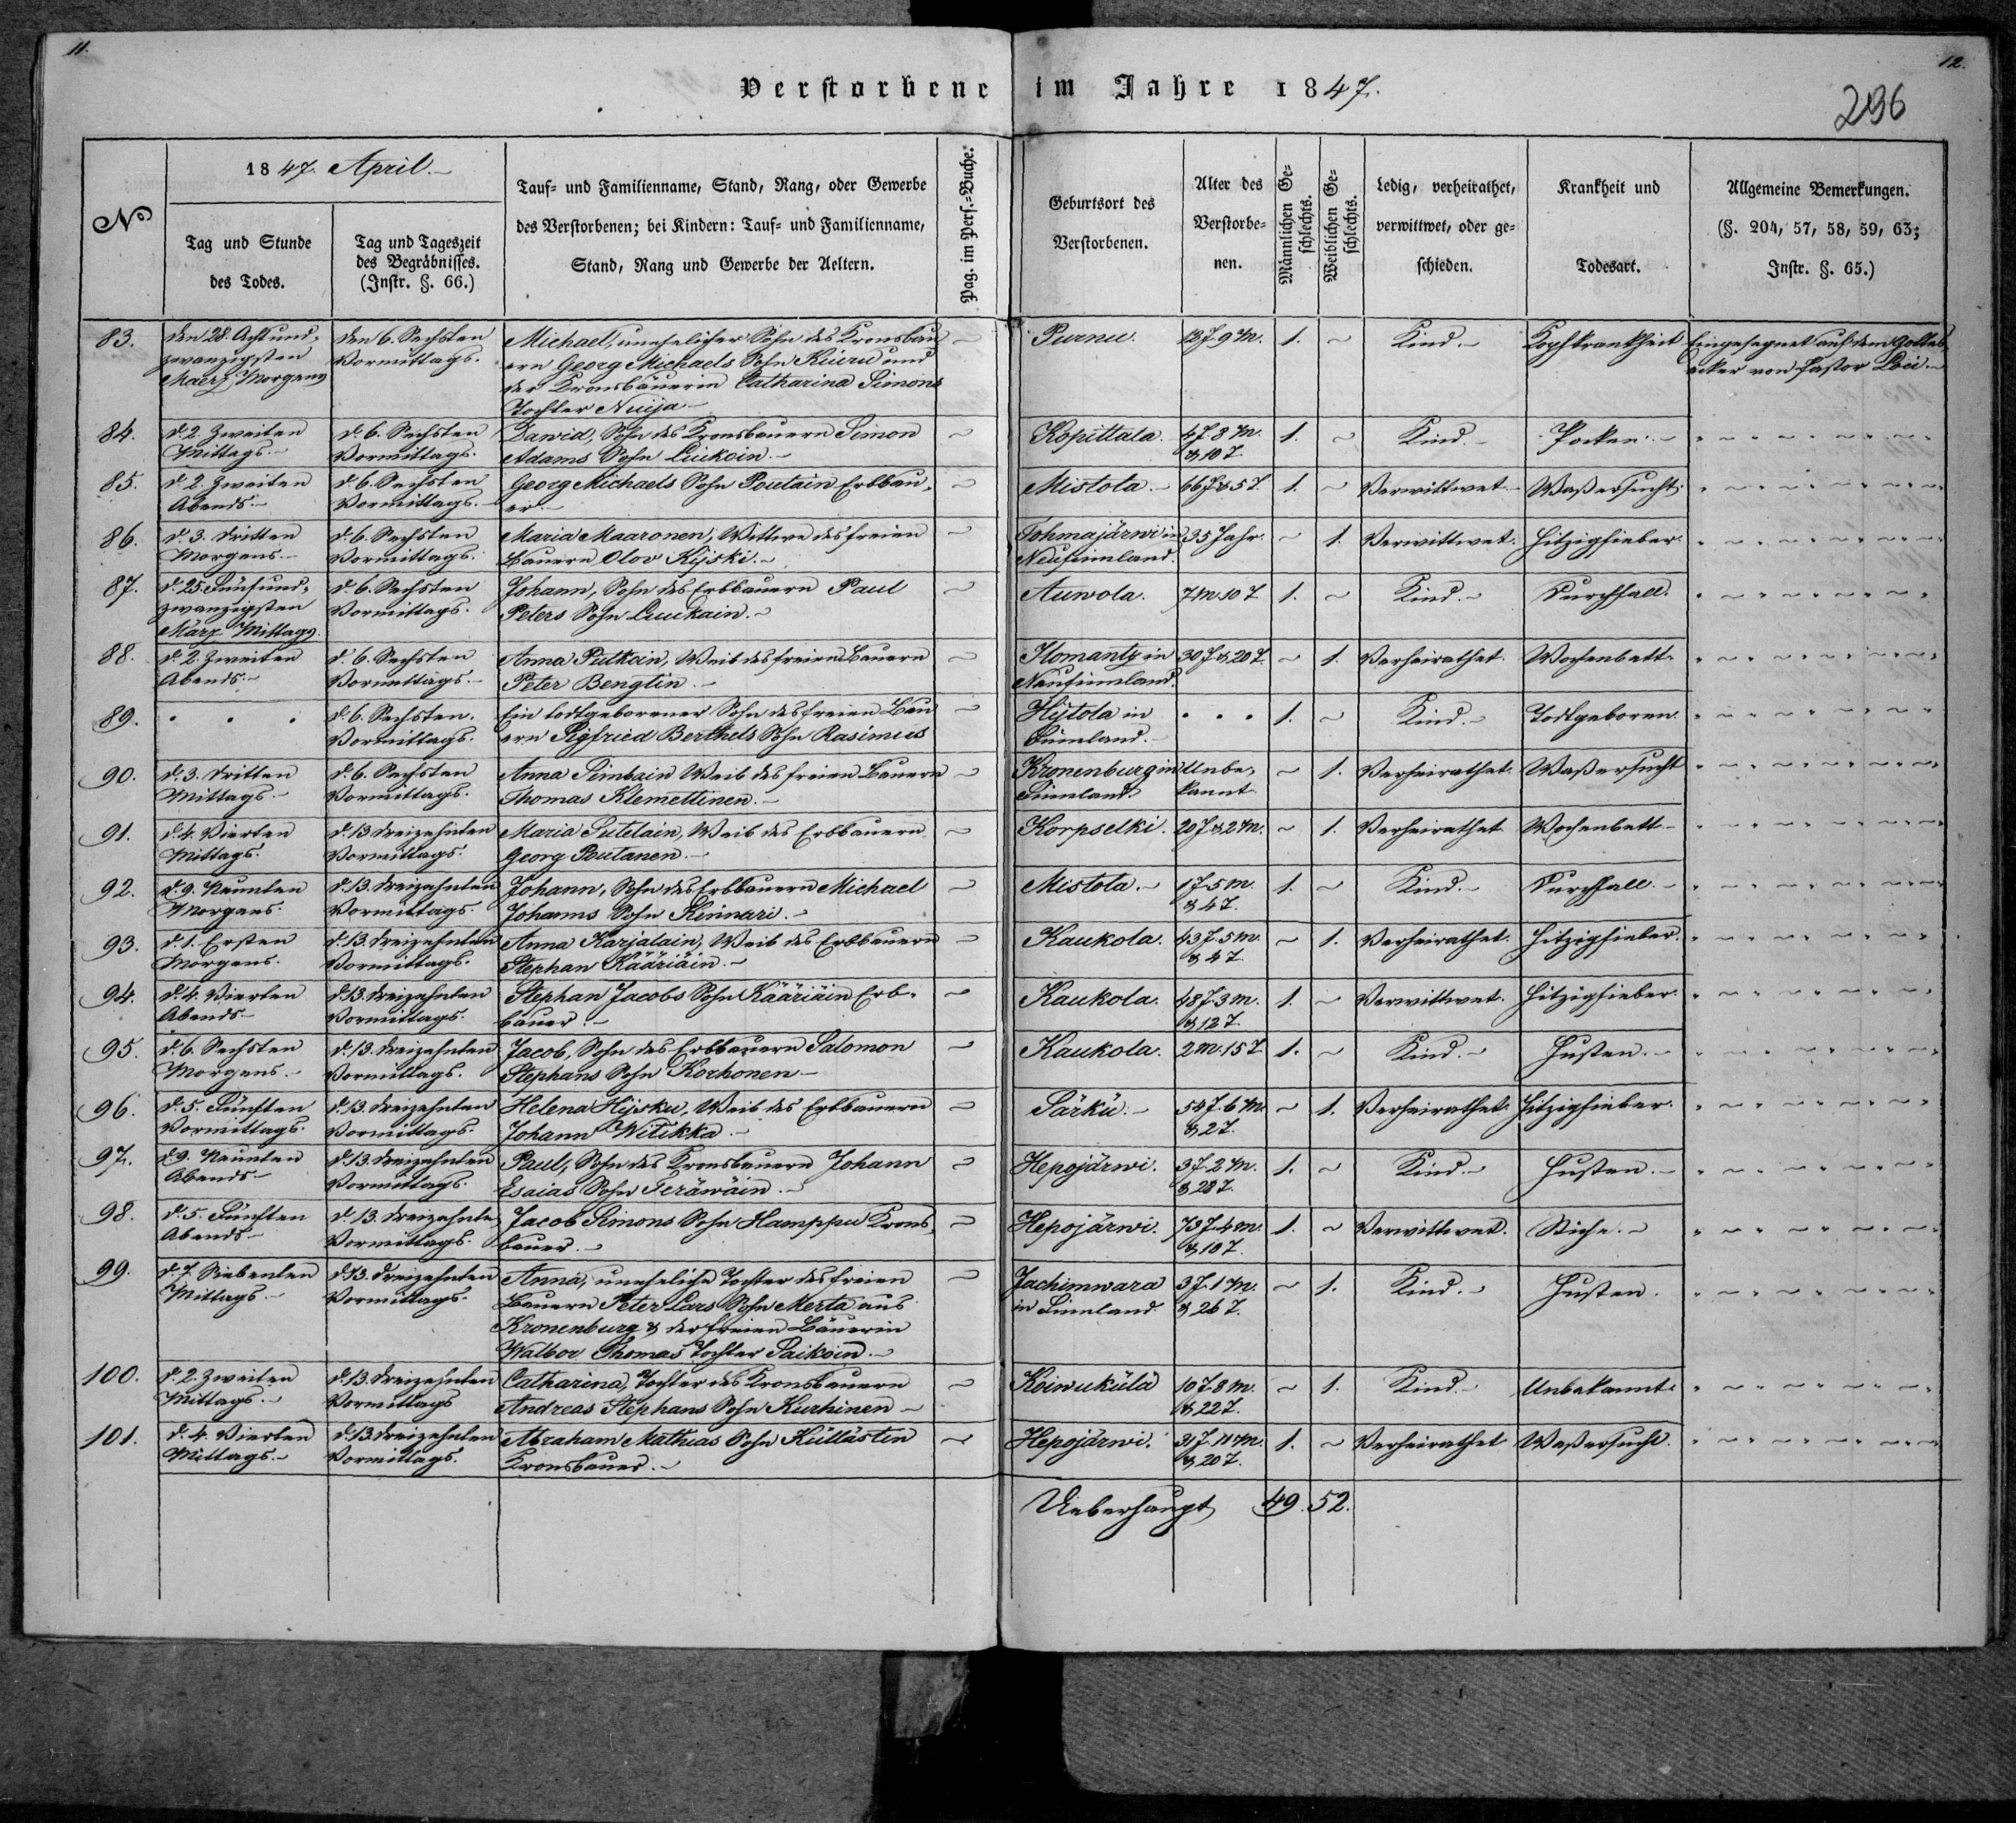 11.
12.
Verstorbene im Jahre 1847.
236
№
1847. April.
Tag und Stunde des Todes.
Tag und Tageszeit des Begräbnisses. (Instr. §. 66.)
Tauf= und Familienname, Stand, Rang, oder Gewerbe
des Verstorbenen; bei Kindern: Tauf= und Familienname,
Stand, Rang und Gewerbe der Aeltern.
Pag. im Pers.=Buche.
Geburtsort des Verstorbenen.
Alter des Verstorbe=nen.
Männlichen Ge=schlechts.
Weiblichen Ge=schlechts.
Ledig, verheirathet, verwittwet, oder ge=schieden.
Krankheit und Todesart.
Allgemeine Bemerkungen.
(§. 204, 57, 58, 59, 63;
Instr. §. 65.)
83. den 28. Achtund- den 6. Sechsten Michael, unehelicher Sohn des Kronsbau Purnu. 12J. 9M. 1. ~ Kind. Kopfkrankheit Eingesegnet auf dem Gottes-
zwanzigsten Vormittags. ern Georg Michaels Sohn Kiuru und acker von Pastor
Maerz Morgens der Kronsbäuerin Catharina Simons
Tochter Nuija
84. d. 2. Zweiten d. 6. Sechsten Dawid, Sohn des Kronsbauern Simon Kopittala. 4J. 8M. 1. ~ Kind. Pocken.
Mittags. Vormittags. Adams Sohn Luikoin. & 10T.
85. d. 2. Zweiten d. 6. Sechsten Georg Michaels Sohn Poutain Erbbau- Mistola. 66J. & 5T. 1. ~ Verwittwet. Waßersucht.
Abends. Vormittags. er.
86. d. 3. Dritten d. 6. Sechsten Maria Maaronen, Wittwe des freien Tohmajärwi in 35 Jahr. ~ 1. Verwittwet. Hitzigfieber.
Morgens. Vormittags. Bauern Olov Kijski. Neufinnland.
87. d. 25. Fünfund- d. 6. Sechsten Johann, Sohn des Erbbauern Paul Auwola. 7M. 10T. 1. ~ Kind. Durchfall.
zwanzigsten Vormittags. Peters Sohn Luukain.
März Mittags.
88. d. 2. Zweiten d. 6. Sechsten Anna Putkoin, Weib des freien Bauern Ilomanty in 30J. & 20T. ~ 1. Verheirathet. Wochenbett.
Abends. Vormittags. Peter Bengtin. Neufinnland.
89. . . . d. 6. Sechsten. Ein todtgeborener Sohn des freien Bau Hijtola in . . . 1. ~ Kind. Todtgeboren.
Vormittags. ern Sigfried Berthels Sohn Rasimus Finnland.
90. d. 3. Dritten d. 6. Sechsten Anna Pimbain Weib des freien Bauern Kronenburg in Unbe- ~ 1. Verheirathet. Waßersucht
Mittags. Vormittags. Thomas Klemettinen. Finnland. kannt.
91. d. 4. Vierten d. 13. Dreizehnten Maria Sutelain, Weib des Erbbauern Korpselki. 20J. & 2M. ~ 1. Verheirathet. Wochenbett
Mittags. Vormittags. Georg Poutanen.
92. d. 9. Neunten d. 13. Dreizehnten Johann, Sohn des Erbbauern Michael Mistola. 1J. 5M. 1. ~ Kind. Durchfall.
Morgens. Vormittags. Johanns Sohn Kinnari. & 4T.
93. d. 1. Ersten d. 13. Dreizehnten Anna Karjalain, Weib des Erbbauern Kaukola. 43J. 5M. ~ 1. Verheirathet. Hitzigfieber.
Morgens. Vormittags. Stephan Kääriäin. & 4T.
94. d. 4. Vierten d. 13. Dreizehnten Stephan Jacobs Sohn Kääriäin Erb- Kaukola. 48J. 3M. 1. ~ Verwittwet. Hitzigfieber.
Abends. Vormittags. bauer. & 12T.
95. d. 6. Sechsten d. 13. Dreizehnten Jacob, Sohn des Erbbauern Salomon Kaukola. 2M. 15T. 1. ~ Kind. Husten.
Morgens. Vormittags. Stephans Sohn Korhonen.
96. d. 5. Fünften d. 13. Dreizehnten Helena Hijsku, Weib des Erbbauern Särkü. 54J. 6M. ~ 1. Verheirathet. Hitzigfieber.
Vormittags. Vormittags. Johann Witikka. & 2T.
97. d. 9. Neunten d. 13. Dreizehnten Paul, Sohn des Kronsbauern Johann Hepojärwi. 3J. 2M. 1. ~ Kind. Husten.
Abends. Vormittags. Esaias Sohn Teräwäin. & 28T.
98. d. 5. Fünften d. 13. Dreizehnten Jacob Simons Sohn Hamppu Krons- Hepojärwi. 73J. 4M. 1. ~ Verwittwet. Stiche.
Abends. Vormittags. bauer. & 10T.
99. d. 7. Siebenten d. 13. Dreizehnten Anna, uneheliche Tochter des freien Jachimwara 3J. 1M. ~ 1. Kind. Husten.
Mittags. Vormittags. Bauern Peter Lars Sohn Merta aus in Finnland & 26T.
Kronenburg & der freien Bäuerin
Walbor Thomas Tochter Saikoin.
100. d. 2. Zweiten d. 13. Dreizehnten Catharina, Tochter des Kronsbauern Koiwuküla 10J. 8M. ~ 1. Kind. Unbekannt.
Mittags. Vormittags Andreas Stephans Sohn Kurhinen & 22T.
101. d. 4. Vierten d. 13. Dreizehnten Abraham Mathias Sohn Küllästin Hepojärwi. 31J. 11M. 1. ~ Verheirathet Waßersucht.
Mittags. Vormittags. Kronsbauer. & 20T.
Ueberhaupt 49. 52.